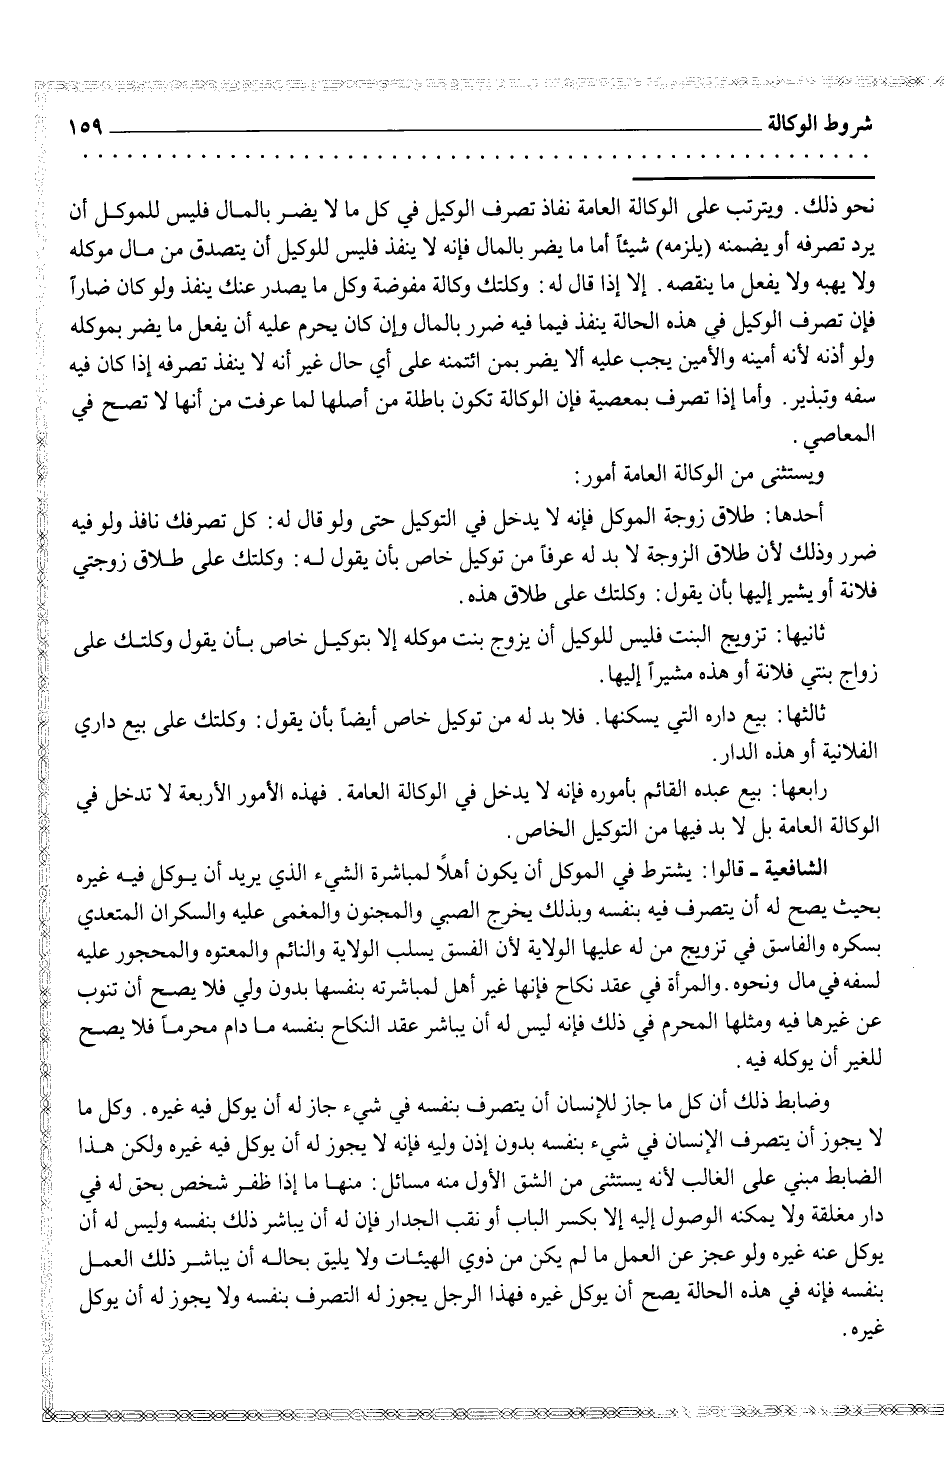 شروط الوكالة ١٥٩
نحو ذلك. ويترتب على الوكالة العامة نفاذ تصرف الوكيل في كل ما لا يضر بالمال فليس للموكل أن
يرد تصرفه أو يضمنه (يلزمه) شيئاً أما ما يضر بالمال فإنه لا ينفذ فليس للوكيل أن يتصدق من مال موكله
ولا يهبه ولا يفعل ما ينقصه. إلا إذا قال له: وكلتك وكالة مفوضة وكل ما يصدر عنك ينفذ ولو كان ضاراً
فإن تصرف الوكيل في هذه الحالة ينفذ فيما فيه ضرر بالمال وإن كان يحرم عليه أن يفعل ما يضر بموكله
ولو أذنه لأنه أمينه والأمين يجب عليه ألا يضر بمن ائتمنه على أي حال غير أنه لا ينفذ تصرفه إذا كان فيه
سفه وتبذير. وأما إذا تصرف بمعصية فإن الوكالة تكون باطلة من أصلها لما عرفت من أنها لا تصح في
المعاصي.
ويستثنى من الوكالة العامة أمور:
أحدها: طلاق زوجة الموكل فإنه لا يدخل في التوكيل حتى ولو قال له: كل تصرفك نافذ ولو فيه
ضرر وذلك لأن طلاق الزوجة لا بد له عرفاً من توكيل خاص بأن يقول له: وكلتك على طلاق زوجتي
فلانة أو يشير إليها بأن يقول: وكلتك على طلاق هذه.
ثانيها: تزويج البنت فليس للوكيل أن يزوج بنت موكله إلا بتوكيل خاص بأن يقول وكلتك على
زواج بنتي فلانة أو هذه مشيراً إليها.
ثالثها: بيع داره التي يسكنها. فلا بد له من توكيل خاص أيضاً بأن يقول: وكلتك على بيع داري
الفلانية أو هذه الدار.
رابعها: بيع عبده القائم بأموره فإنه لا يدخل في الوكالة العامة. فهذه الأمور الأربعة لا تدخل في
الوكالة العامة بل لا بد فيها من التوكيل الخاص.
الشافعية ـ قالوا: يشترط في الموكل أن يكون أهلاً لمباشرة الشيء الذي يريد أن يوكل فيه غيره
بحيث يصح له أن يتصرف فيه بنفسه وبذلك يخرج الصبي والمجنون والمغمى عليه والسكران المتعدي
بسكره والفاسق في تزويج من له عليها الولاية لأن الفسق يسلب الولاية والنائم والمعتوه والمحجور عليه
لسفه في مال ونحوه. والمرأة في عقد نكاح فإنها غير أهل لمباشرته بنفسها بدون ولي فلا يصح أن تنوب
عن غيرها فيه ومثلها المحرم في ذلك فإنه ليس له أن يباشر عقد النكاح بنفسه ما دام محرماً فلا يصح
للغير أن يوكله فيه.
وضابط ذلك أن كل ما جاز للإنسان أن يتصرف بنفسه في شيء جاز له أن يوكل فيه غيره. وكل ما
لا يجوز أن يتصرف الإنسان في شيء بنفسه بدون إذن وليه فإنه لا يجوز له أن يوكل فيه غيره ولكن هذا
الضابط مبني على الغالب لأنه يستثنى من الشق الأول منه مسائل: منها ما إذا ظفر شخص بحق له في
دار مغلقة ولا يمكنه الوصول إليه إلا بكسر الباب أو نقب الجدار فإن له أن يباشر ذلك بنفسه وليس له أن
يوكل عنه غيره ولو عجز عن العمل ما لم يكن من ذوي الهيئات ولا يليق بحاله أن يباشر ذلك العمل
بنفسه فإنه في هذه الحالة يصح أن يوكل غيره فهذا الرجل يجوز له التصرف بنفسه ولا يجوز له أن يوكل
غيره.